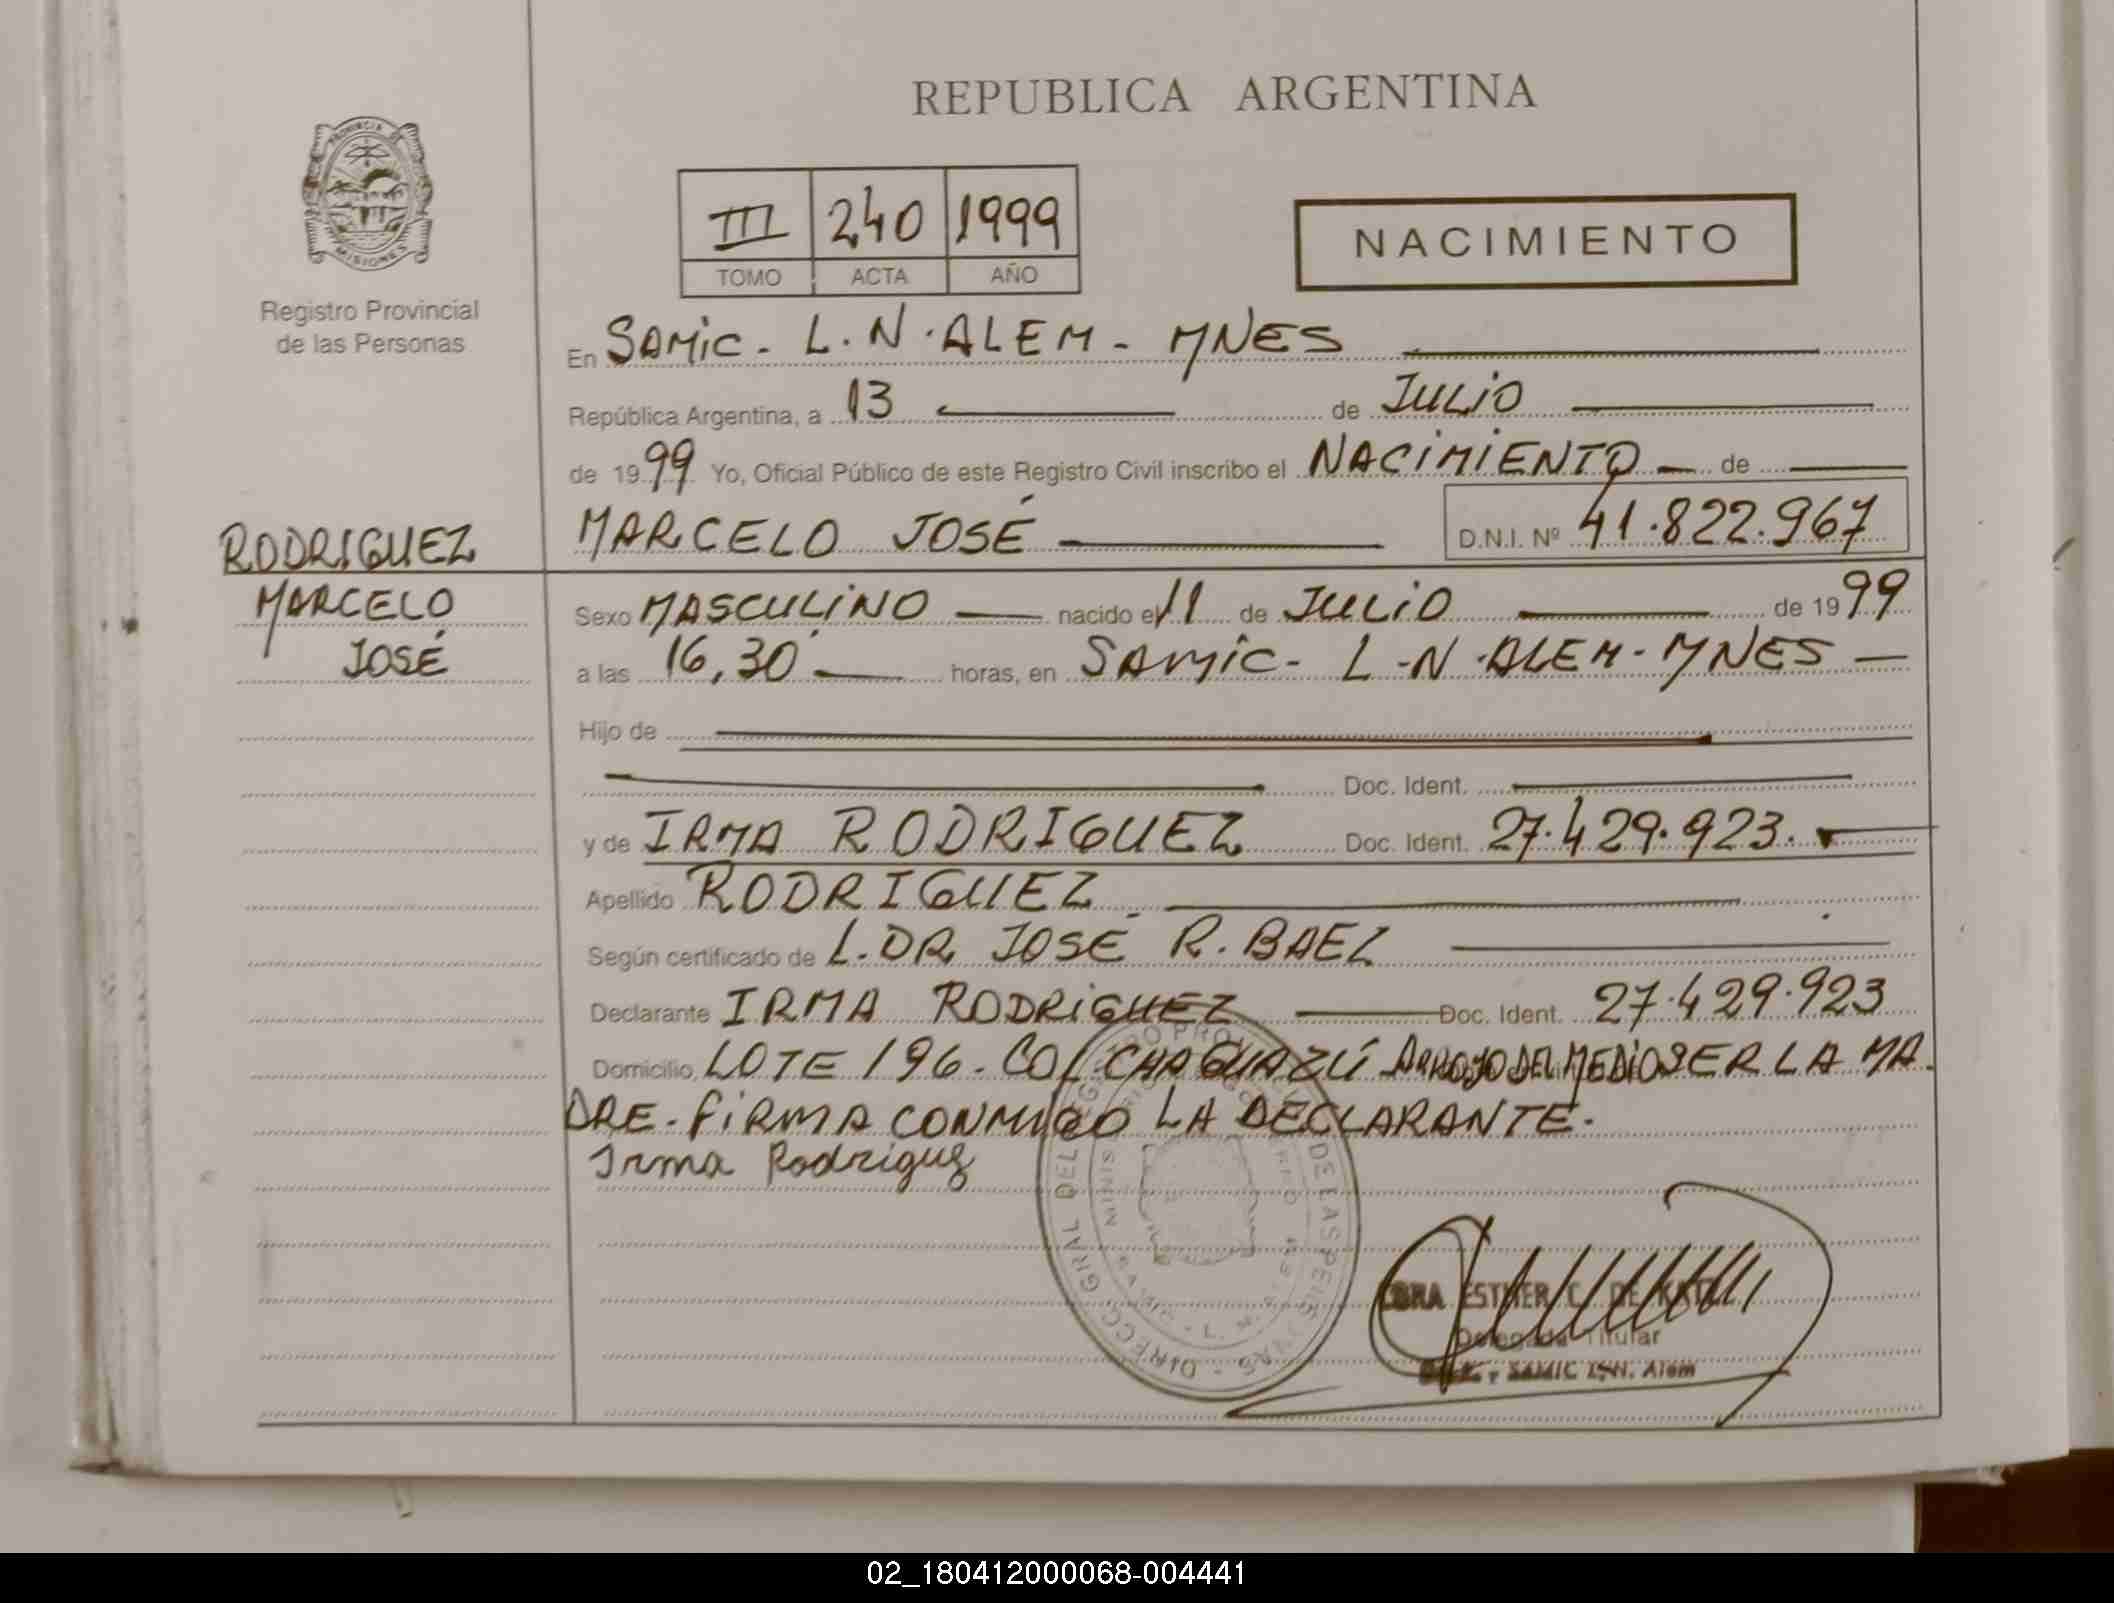 REPUBLICA ARGENTINA
PROVINCIA DE MISIONES
III 240 1999
TOMO ACTA AÑO
NACIMIENTO
Registro Provincial
de las Personas
En SAMiC - L.N. ALEM - MNES
República Argentina, a 13 de JULiO
de 1999 Yo, Oficial Público de este Registro Civil inscribo el NACiMiENTO de
RODRIGUEZ
MARCELO
JOSÉ
MARCELO JOSÉ D.N.I. Nº 41.822.967
Sexo MASCULiNO nacido el 11 de JULiO de 1999
a las 16,30 horas, en SAMiC - L-N-ALEM-MNES
Hijo de
Doc. Ident.
y de IRMA RODRIGUEZ Doc. Ident. 27.429.923.
Apellido RODRIGUEZ
Según certificado de L. DR JOSE R. BAEZ
Declarante IRMA RODRiGUEZ Doc. Ident. 27.429.923
Domicilio LOTE 196 - COL CHAGUAZÚ ARROJO DEL MEDiO SER LA MA
DRE - FiRMA CONMIGO LA DECLARANTE.
Irma Rodriguz
DIRECC GRAL DEL REGISTRO PROV DE LAS PERSONAS
ESTHER C. DE
Delegada Titular
SAMIC L.N. Alem
02_180412000068-004441